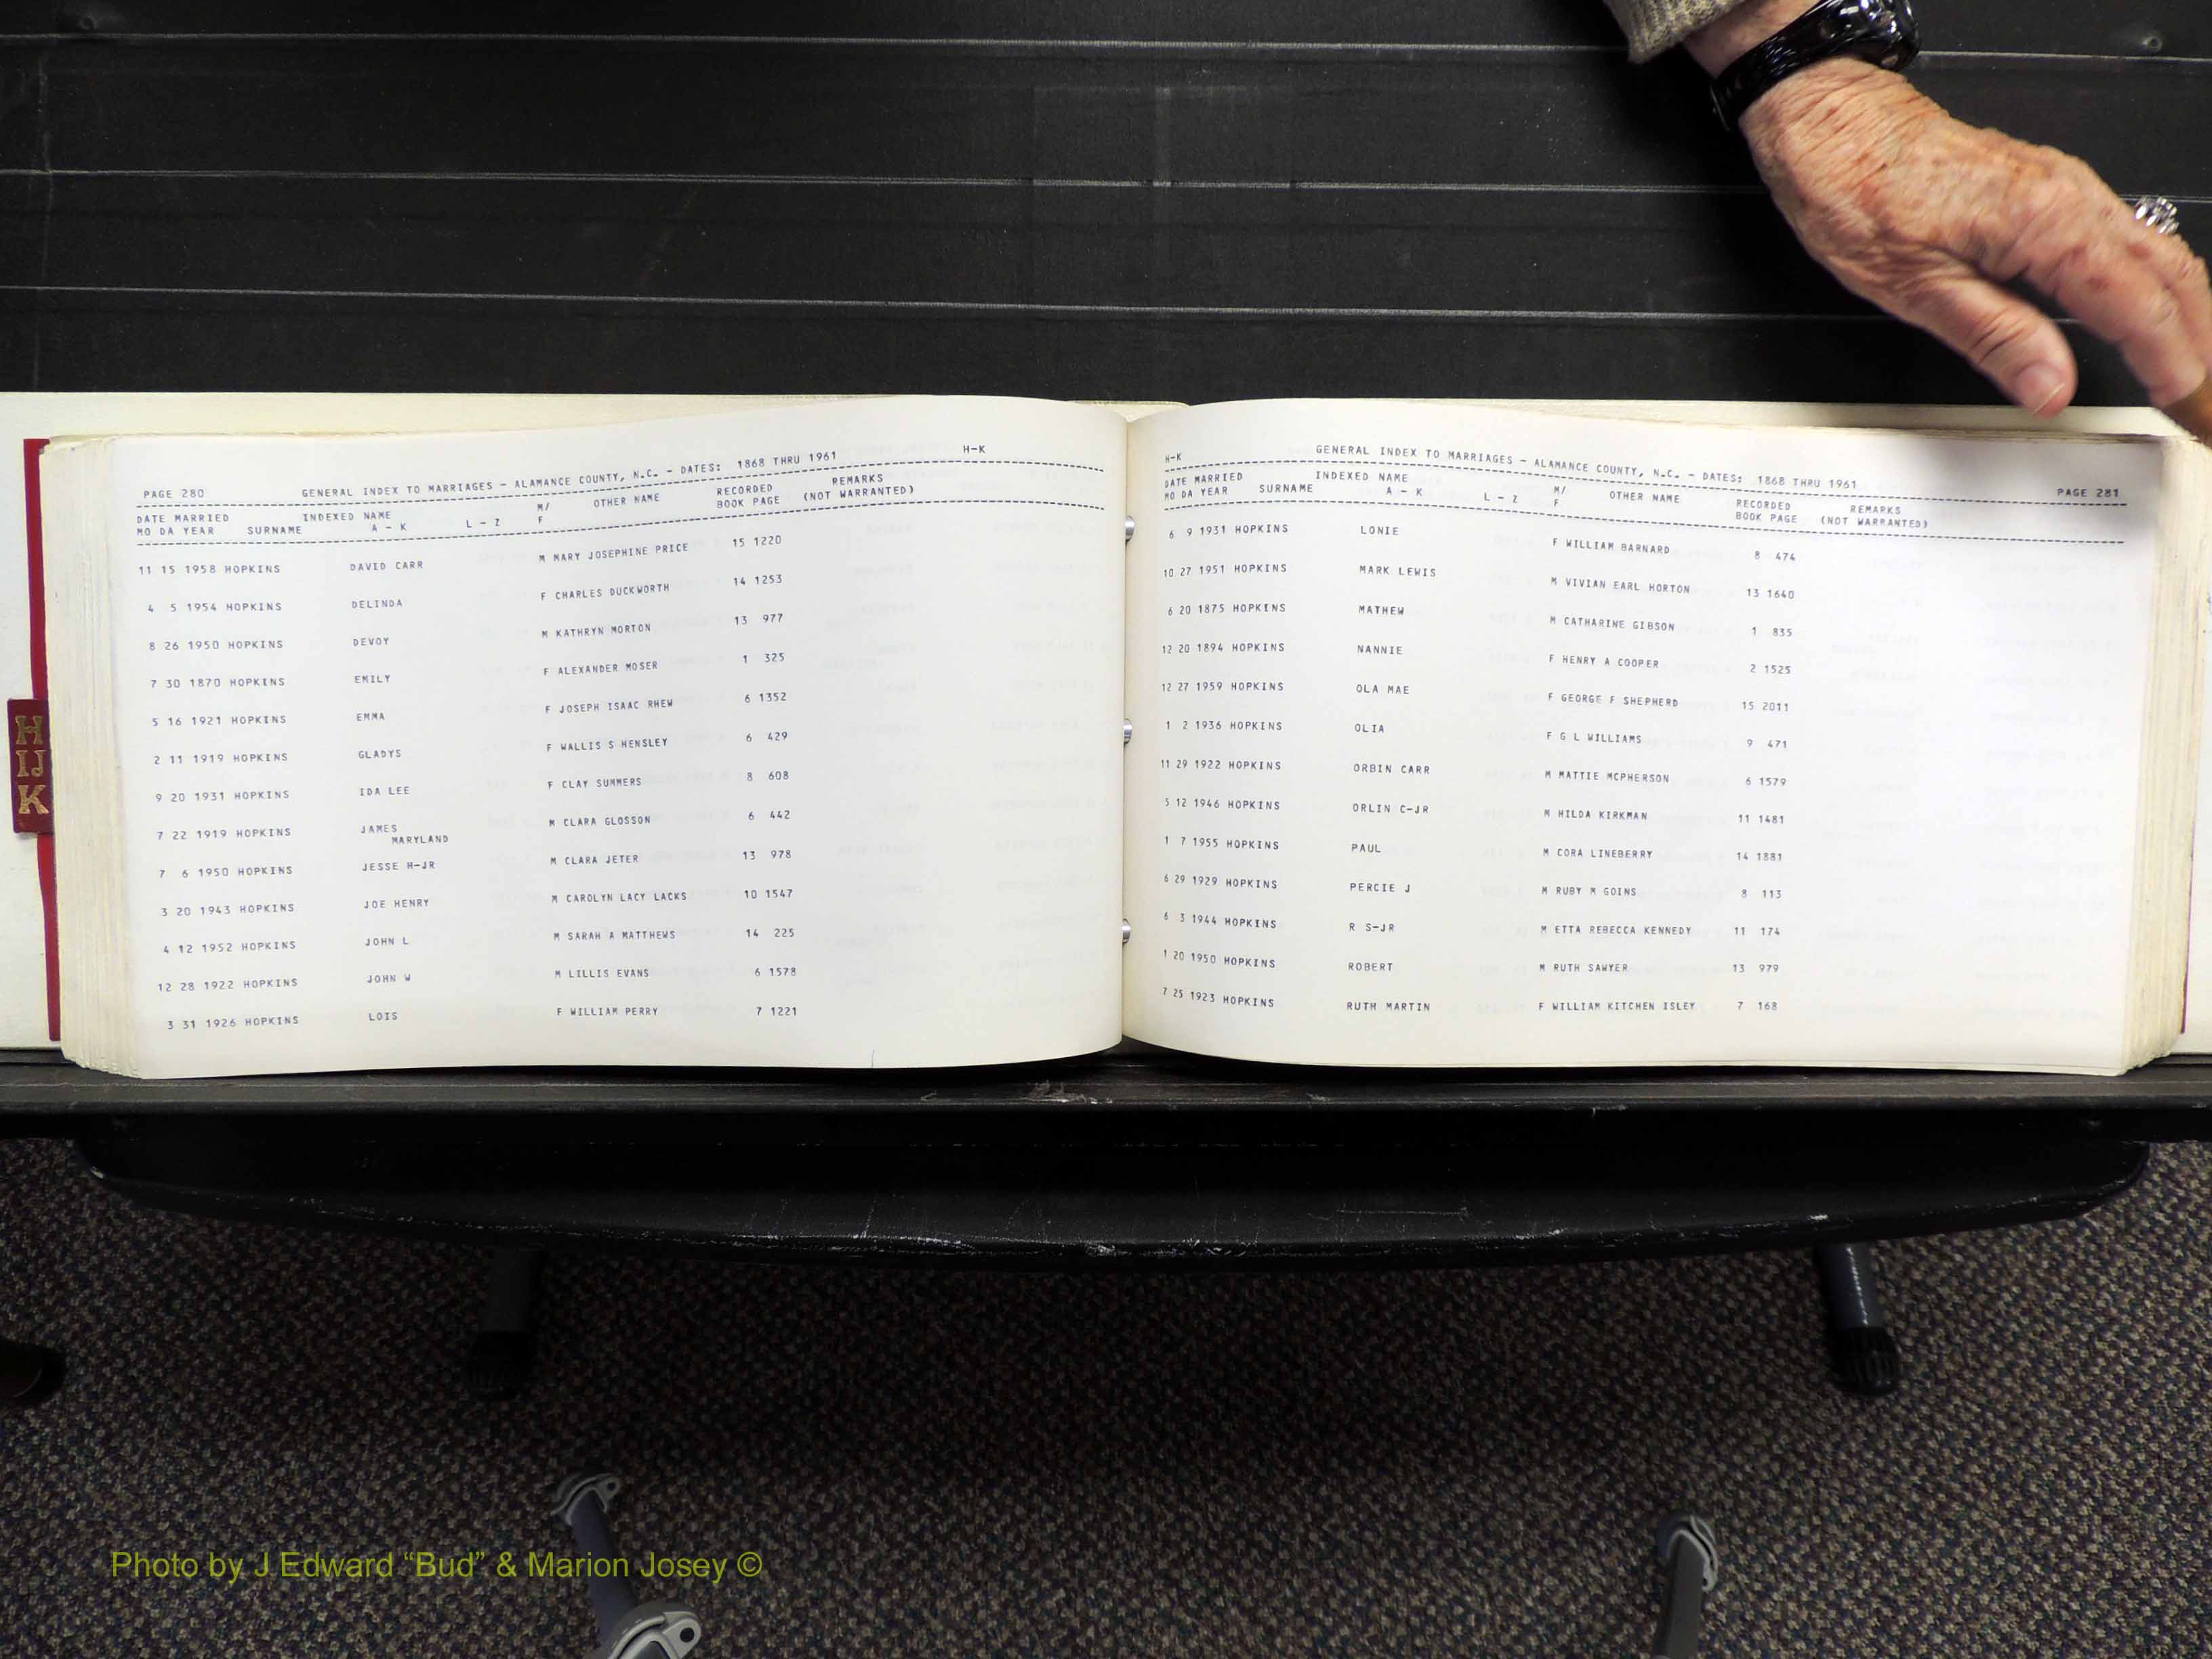 H
IJ
K
PAGE 280 GENERAL INDEX TO MARRIAGES - ALAMANCE COUNTY, N.C. - DATES: 1868 THRU 1961 H-K
DATE MARRIED INDEXED NAME M/ OTHER NAME RECORDED REMARKS
MO DA YEAR SURNAME A - K L - Z F BOOK PAGE (NOT WARRANTED)
11 15 1958 HOPKINS DAVID CARR M MARY JOSEPHINE PRICE 15 1220
4 5 1954 HOPKINS DELINDA F CHARLES DUCKWORTH 14 1253
8 26 1950 HOPKINS DEVOY M KATHRYN MORTON 13 977
7 30 1870 HOPKINS EMILY F ALEXANDER MOSER 1 325
5 16 1921 HOPKINS EMMA F JOSEPH ISAAC RHEW 6 1352
2 11 1919 HOPKINS GLADYS F WALLIS S HENSLEY 6 429
9 20 1931 HOPKINS IDA LEE F CLAY SUMMERS 8 608
7 22 1919 HOPKINS JAMES M CLARA GLOSSON 6 442
MARYLAND
7 6 1950 HOPKINS JESSE H-JR M CLARA JETER 13 978
3 20 1943 HOPKINS JOE HENRY M CAROLYN LACY LACKS 10 1547
4 12 1952 HOPKINS JOHN L M SARAH A MATTHEWS 14 225
12 28 1922 HOPKINS JOHN W M LILLIS EVANS 6 1578
3 31 1926 HOPKINS LOIS F WILLIAM PERRY 7 1221
H-K GENERAL INDEX TO MARRIAGES - ALAMANCE COUNTY, N.C. - DATES: 1868 THRU 1961 PAGE 281
DATE MARRIED INDEXED NAME M/ OTHER NAME RECORDED REMARKS
MO DA YEAR SURNAME A - K L - Z F BOOK PAGE (NOT WARRANTED)
6 9 1931 HOPKINS LONIE F WILLIAM BARNARD 8 474
10 27 1951 HOPKINS MARK LEWIS M VIVIAN EARL HORTON 13 1640
6 20 1875 HOPKINS MATHEW M CATHARINE GIBSON 1 835
12 20 1894 HOPKINS NANNIE F HENRY A COOPER 2 1525
12 27 1959 HOPKINS OLA MAE F GEORGE F SHEPHERD 15 2011
1 2 1936 HOPKINS OLIA F G L WILLIAMS 9 471
11 29 1922 HOPKINS ORBIN CARR M MATTIE MCPHERSON 6 1579
5 12 1946 HOPKINS ORLIN C-JR M HILDA KIRKMAN 11 1481
1 7 1955 HOPKINS PAUL M CORA LINEBERRY 14 1881
6 29 1929 HOPKINS PERCIE J M RUBY M GOINS 8 113
6 3 1944 HOPKINS R S-JR M ETTA REBECCA KENNEDY 11 174
1 20 1950 HOPKINS ROBERT M RUTH SAWYER 13 979
7 25 1923 HOPKINS RUTH MARTIN F WILLIAM KITCHEN ISLEY 7 168
Photo by J Edward “Bud” & Marion Josey ©